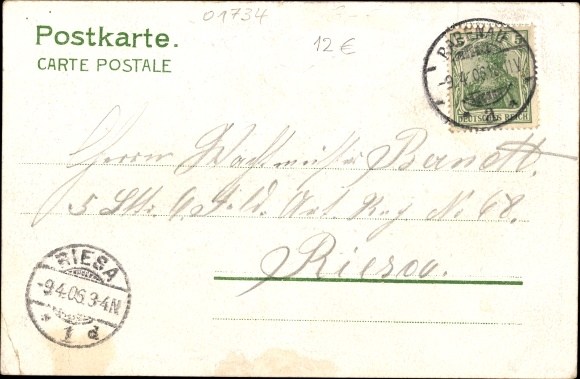 01734
Postkarte.
12 €
CARTE POSTALE
RABENAU
DEUTSCHES REICH
Herrn Wachtmeister Berndt.
5 Bttr. 6. Feld. Art Reg No 68.
Riesa.
RIESA
-9.4.06.3-4N.
* 1 d